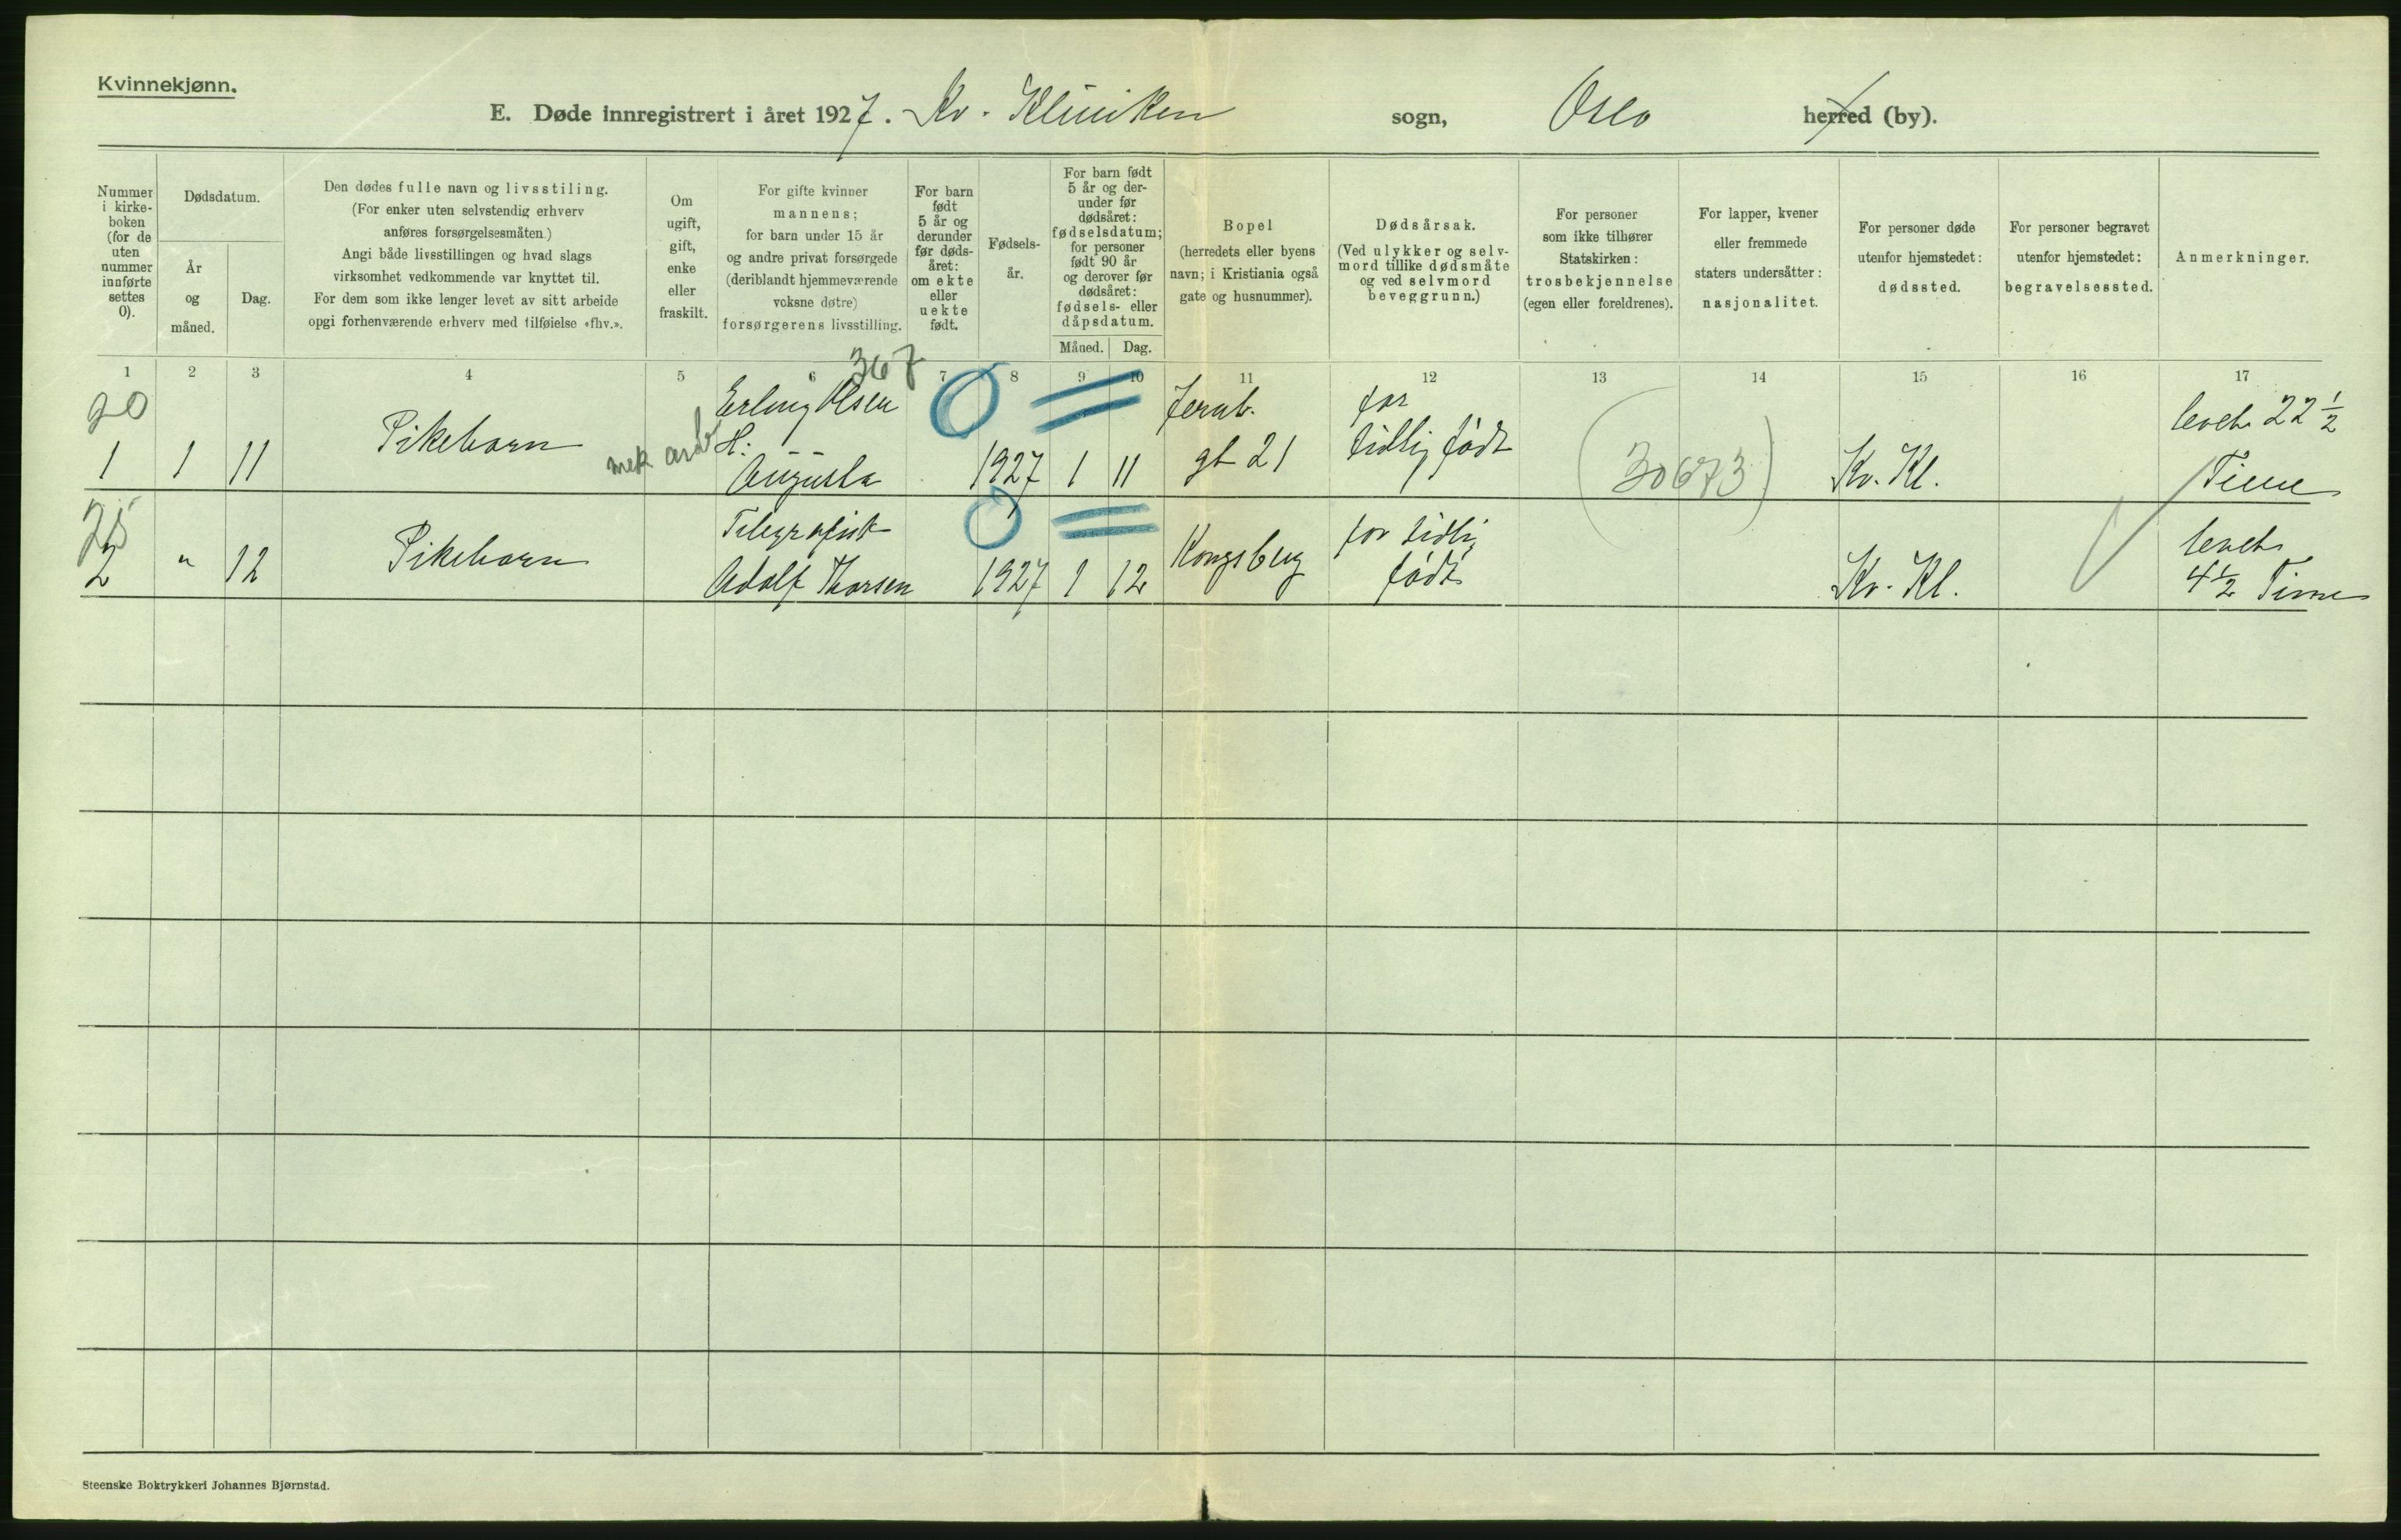 Kvinnekjønn.
E. Døde innregistrert i året 1927. Kv. Kliniken sogn, Oslo herred (by).
Nummer
i kirke-
boken
(for de
uten
nummer
innførte
settes
0).
Dødsdatum.
År
og
måned.
Dag.
Den dødes fulle navn og livsstiling.
(For enker uten selvstendig erhverv
anføres forsørgelsesmåten.)
Angi både livsstillingen og hvad slags
virksomhet vedkommende var knyttet til.
For dem som ikke lenger levet av sitt arbeide
opgi forhenværende erhverv med tilføielse «fhv.».
Om
ugift,
gift,
enke
eller
fraskilt.
For gifte kvinner
mannens;
for barn under 15 år
og andre privat forsørgede
(deriblandt hjemmeværende
voksne døtre)
forsørgerens livsstilling.
For barn
født
5 år og
derunder
før døds-
året:
om ekte
eller
uekte
født.
Fødsels-
år.
For barn født
5 år og der-
under før
dødsåret:
fødselsdatum;
for personer
født 90 år
og derover før
dødsåret:
fødsels- eller
dåpsdatum.
Måned.
Dag.
Bopel
(herredets eller byens
navn; i Kristiania også
gate og husnummer).
Dødsårsak.
(Ved ulykker og selv-
mord tillike dødsmåte
og ved selvmord
beveggrunn.)
For personer
som ikke tilhører
Statskirken:
trosbekjennelse
(egen eller foreldrenes).
For lapper, kvener
eller fremmede
staters undersåtter:
nasjonalitet.
For personer døde
utenfor hjemstedet:
dødssted.
For personer begravet
utenfor hjemstedet:
begravelsessted.
Anmerkninger.
1 2 3 4 5 6 7 8 9 10 11 12 13 14 15 16 17
20
367
1 1 11 Pikebarn
mek arb
Erling Olsen
H:
Augusta
1927 1 11
Jernb.
gt 21
for
tidlig født
(30673)
Kv. Kl.
levet 22 ½
Time
25
2 " 12 Pikebarn
Telegrafist
Adolf Thorsen
1927 1 12
Kongsberg
for tidlig
født
Kv. Kl.
levet
4½ Time
Steenske Boktrykkeri Johannes Bjørnstad.